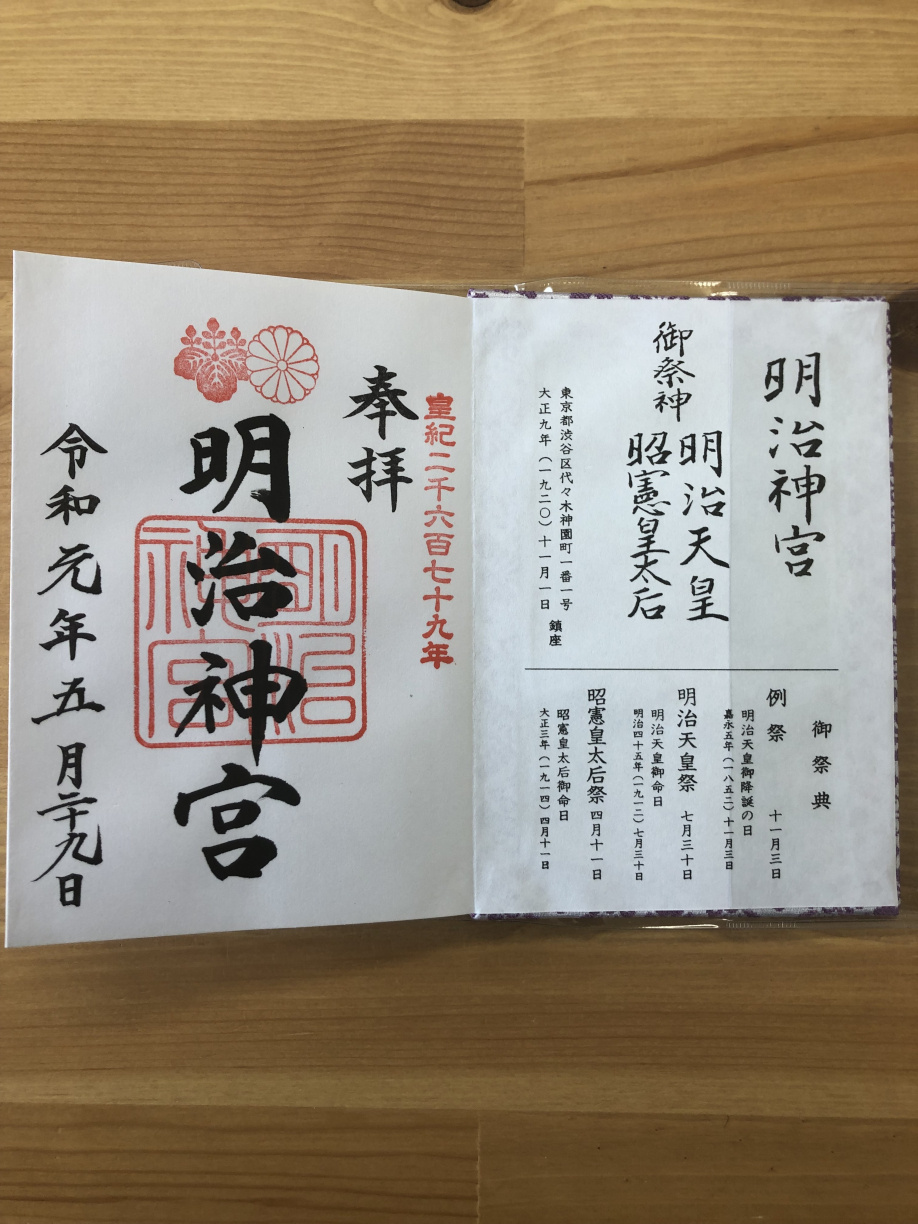 明治神宮
御祭神
明治天皇
昭憲皇太后
東京都渋谷区代々木神園町一番一号
大正九年(一九二〇)十一月一日 鎮座
御祭典
例祭 十一月三日
明治天皇御降誕の日
嘉永五年(一八五二)十一月三日
明治天皇祭 七月三十日
明治天皇御命日
明治四十五年(一九一二)七月三十日
昭憲皇太后祭 四月十一日
昭憲皇太后御命日
大正三年(一九一四)四月十一日
皇紀二千六百七十九年
奉拝
明治神宮
明治神宮
令和元年五月二十九日